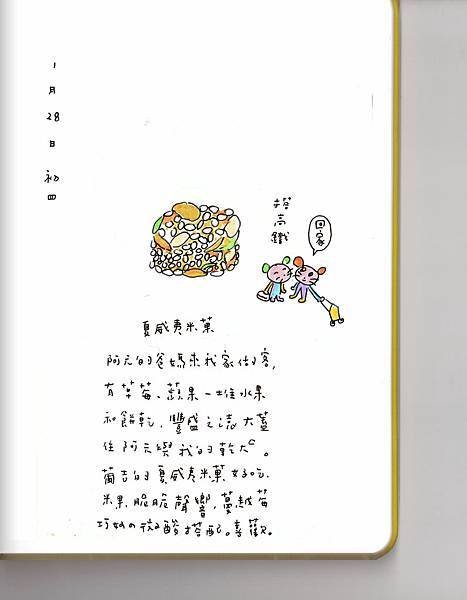 1月28日 初四
搭高鐵
回家
夏威夷米菓
阿元的爸媽來我家做客,
有草莓、蘋果一堆水果
和餅乾,豐盛之 大蓋
住阿元與我的
葡吉的夏威夷米菓好吃、
米果脆脆聲響,蔓越莓
巧妙の微酸搭配。喜歡。